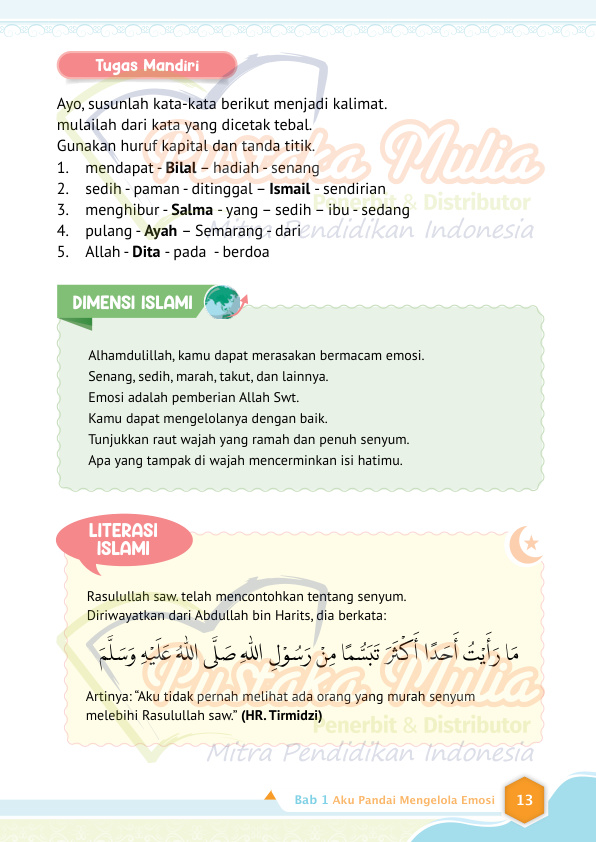 Tugas Mandiri
Ayo, susunlah kata-kata berikut menjadi kalimat.
mulailah dari kata yang dicetak tebal.
Gunakan huruf kapital dan tanda titik.
1. mendapat - Bilal – hadiah - senang
2. sedih - paman - ditinggal – Ismail - sendirian
3. menghibur - Salma - yang – sedih – ibu - sedang
4. pulang - Ayah – Semarang - dari
5. Allah - Dita - pada - berdoa
Pustaka Mulia
Penerbit & Distributor
Mitra Pendidikan Indonesia
DIMENSI ISLAMI
Alhamdulillah, kamu dapat merasakan bermacam emosi.
Senang, sedih, marah, takut, dan lainnya.
Emosi adalah pemberian Allah Swt.
Kamu dapat mengelolanya dengan baik.
Tunjukkan raut wajah yang ramah dan penuh senyum.
Apa yang tampak di wajah mencerminkan isi hatimu.
LITERASI
ISLAMI
Rasulullah saw. telah mencontohkan tentang senyum.
Diriwayatkan dari Abdullah bin Harits, dia berkata:
مَا رَأَيْتُ أَحَدًا أَكْثَرَ تَبَسُّمًا مِنْ رَسُوْلِ اللهِ صَلَّى اللهُ عَلَيْهِ وَسَلَّمَ
Artinya: “Aku tidak pernah melihat ada orang yang murah senyum
melebihi Rasulullah saw.” (HR. Tirmidzi)
Pustaka Mulia
Penerbit & Distributor
Mitra Pendidikan Indonesia
Bab 1 Aku Pandai Mengelola Emosi 13